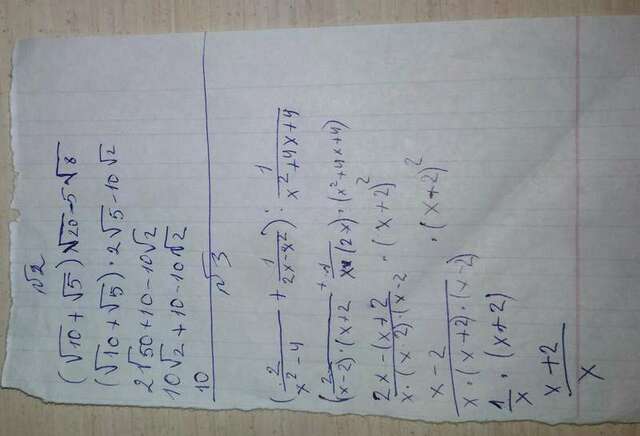 √2
(√10 + √5)√20 - 5√8
(√10 + √5) · 2√5 - 10√2
2√50 + 10 - 10√2
10√2 + 10 - 10√2
10
√3
(2/(x² - 4) + 1/(2x - x²)) : 1/(x² + 4x + 4)
(2/((x - 2) · (x + 2)) + 1/(x · (2 x))) · (x² + 4x + 4)
(2x - (x + 2))/(x · (x 2) · (x - 2)) · (x + 2)²
(x - 2)/(x · (x + 2) · (x - 2)) · (x + 2)²
1/x · (x + 2)
(x + 2)/x